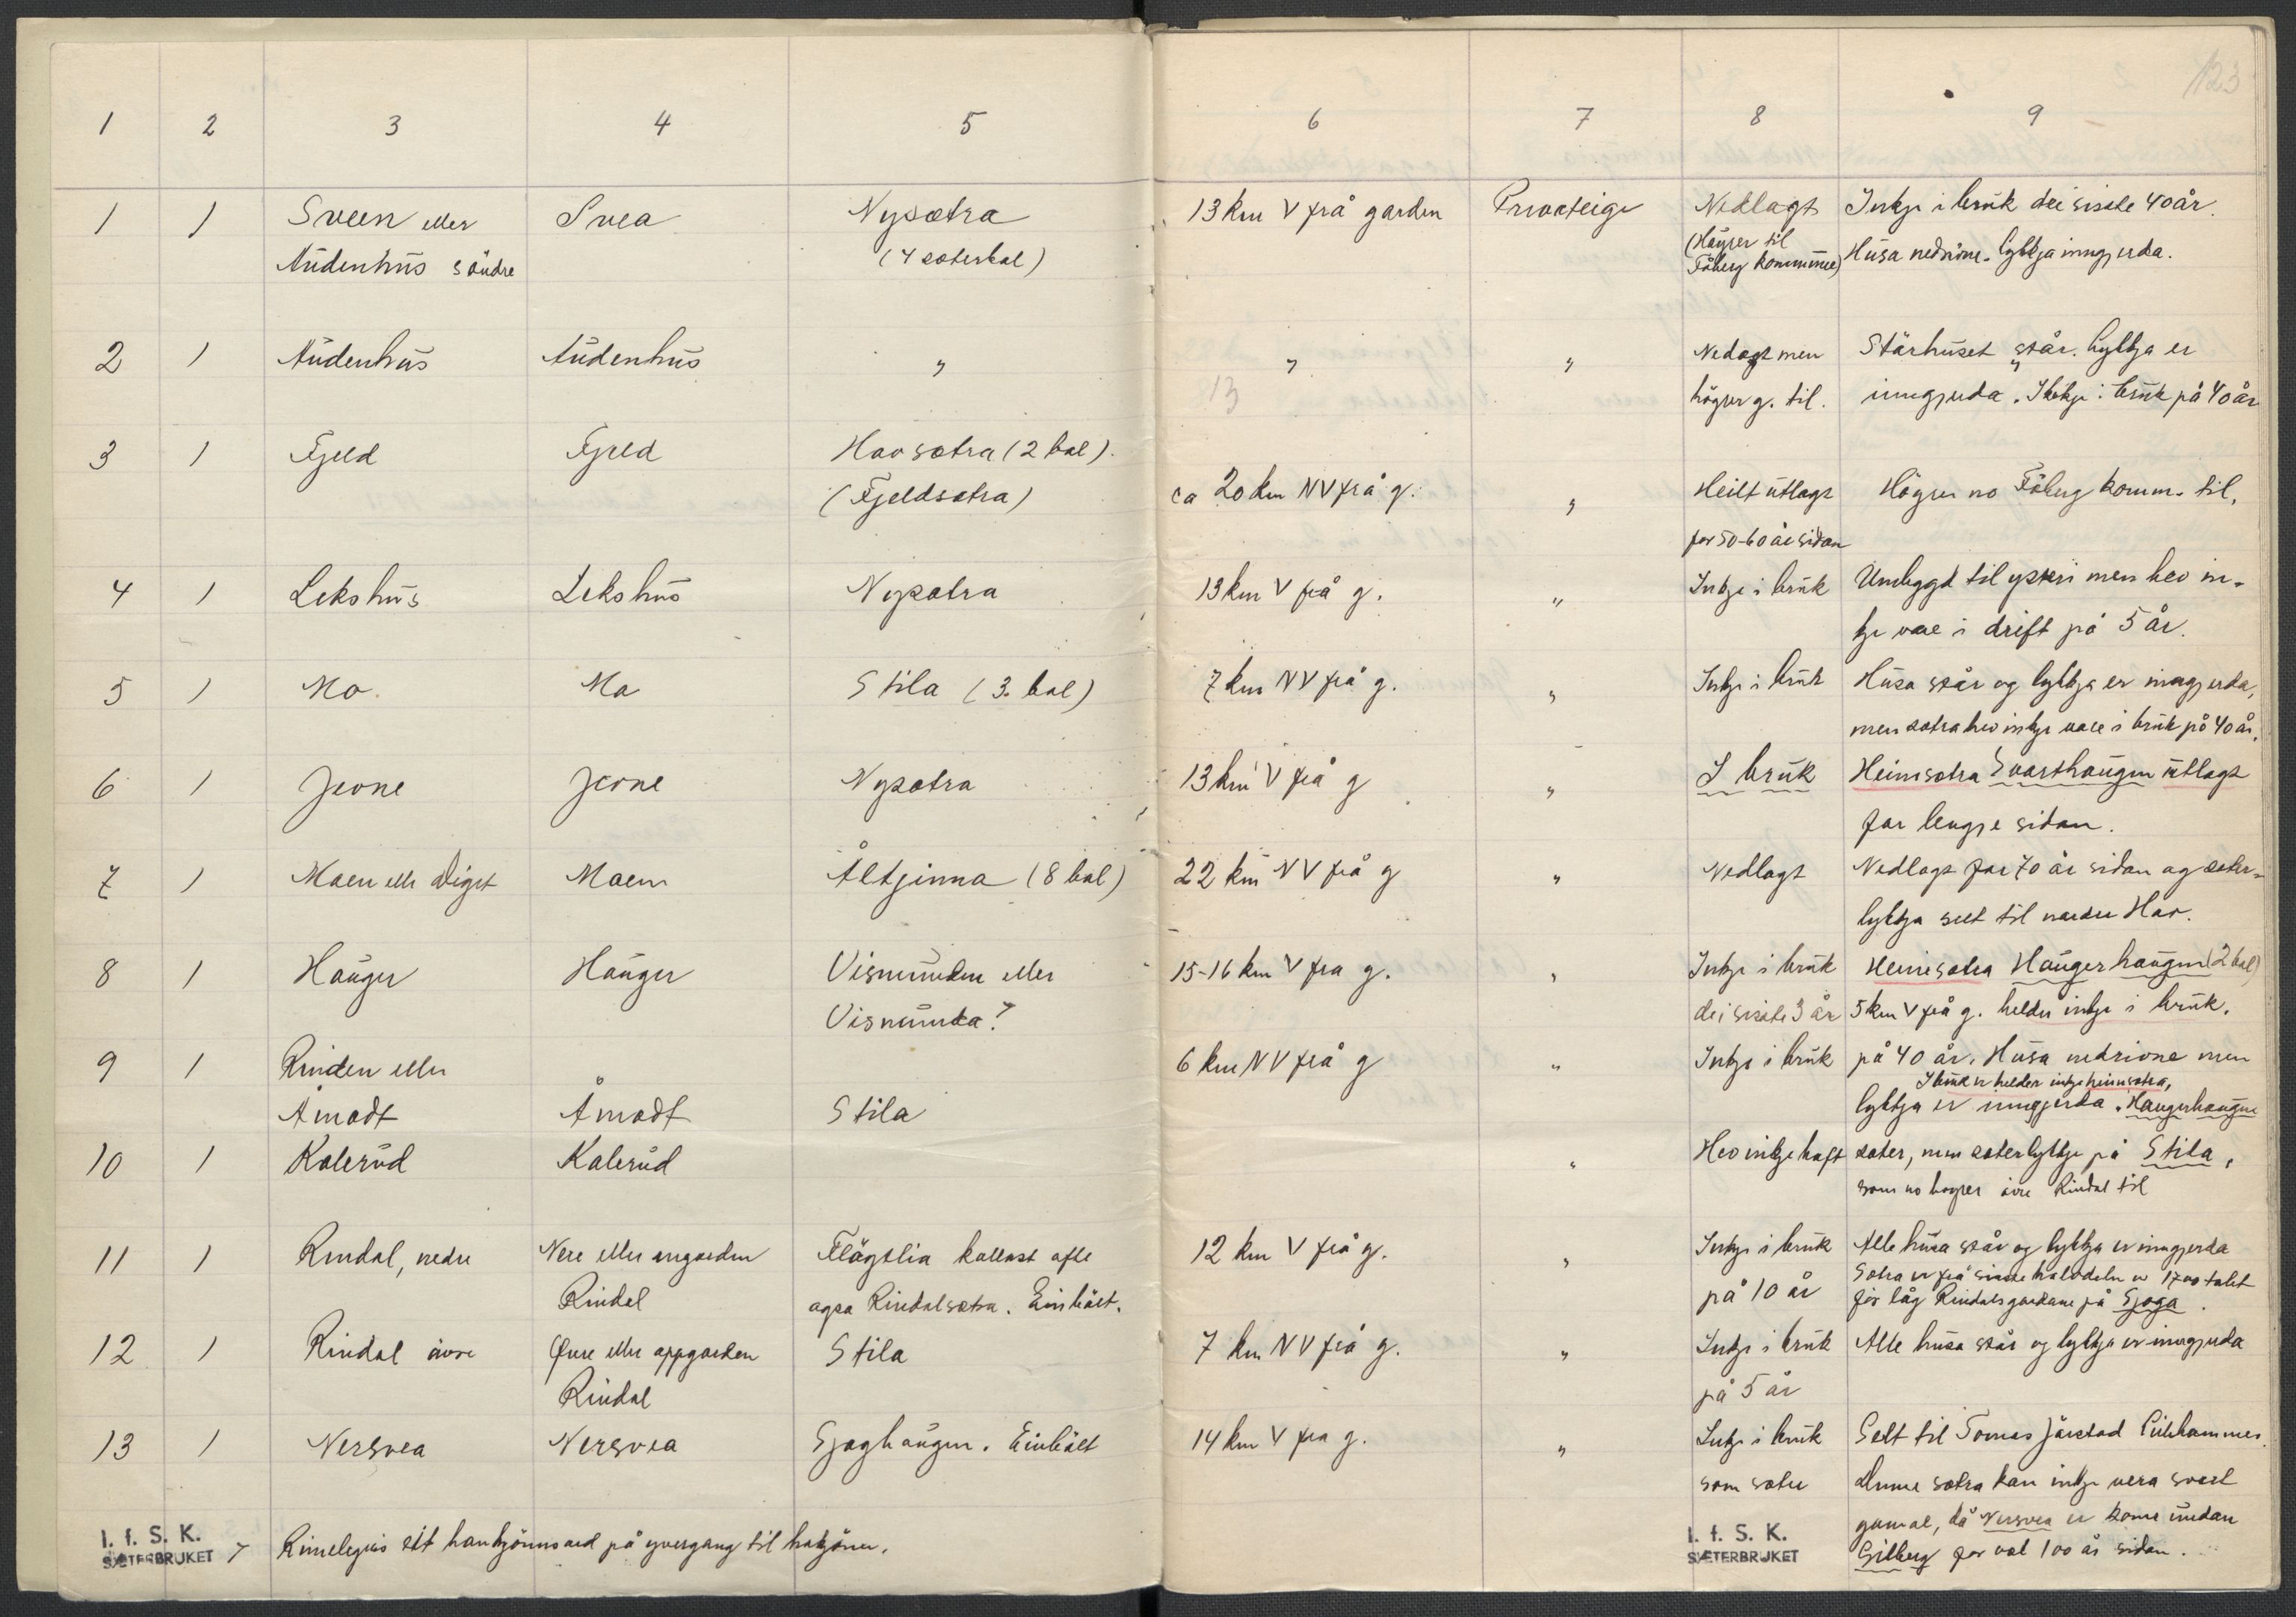 123
1 2 3 4 5 6 7 8 9
1 1 Sveen eller Svea Nysætra 13 km V frå garden Privateige Nedlagt Inkje i bruk dei siste 40 år.
Audenhus söndre (4 sæterbøl) (Höyrer til Fåberg kommune) Husa nedrivne. lykkja inngjerda.
2 1 Audenhus Audenhus " " " Nedlagt men Stårhuset står. Lykkja er
13 högrer g. til. inngjerda. Ikkje i bruk på 40 år
3 1 Fjeld Fjeld Hovsætra (2 bøl).
(Fjeldsætra) ca 20 km NV frå g. " Heilt utlagt Högrer no Fåberg komm. til.
for 50-60 år sidan
4 1 Lekshus Lekshus Nysætra 13 km V frå g. " Inkje i bruk Umbyggd til ysteri men hev in-
kje vore i drift på 5 år.
5 1 Mo Mo Stila (3 bøl) 7 km NV frå g. " Inkje i bruk Husa står og lykkja er inngjerda,
men sætra hev inkje vore i bruk på 40 år.
6 1 Jevne Jevne Nysætra 13 km V frå g " I bruk Heimsætra Svarthaugen utlagt
for lengje sidan.
7 1 Moen eller Diget Moen Åltjinna (8 bøl) 22 km NV frå g " Nedlagt Nedlagt for 70 år sidan og sæter-
lykkja selt til nordre Hov.
8 1 Hauger Hauger Vismunden eller 15-16 km V fra g. " Inkje i bruk Heimesætra Haugerhaugen (2 bøl)
Vismunda? dei siste 3 år 5 km V frå g. heldu inkje i bruk.
9 1 Rinden eller 6 km NV frå g " Inkje i bruk på 40 år. Husa nedrivne men
I bruk er helder inkje heimsætra,
Åmodt Åmodt Stila lykkja er inngjerda. Haugerhaugen
10 1 Kalerud Kalerud " Hev inkje haft sæter, men sæterlykkje på Stila,
som no högrer övre Rindal til
11 1 Rindal, nedre Nere eller nigarden Flågålia kallast ofte 12 km V frå g. " Inkje i bruk Alle husa står og lykkja er inngjerda
Rindal ogso Rindalsætra. Einbölt. på 10 år Sætra er frå siste halvdeln av 1700 talet
för låg Rindalsgardane på Sjoga.
12 1 Rindal övre Övre eller oppgarden Stila 7 km NV frå g. " Inkje i bruk Alle husa står og lykkja er inngjerda
Rindal på 5 år
13 1 Nersvea Nersvea Sjoghaugen. Einbölt 14 km V fra g. " Inkje i bruk Selt til Tomas Jørstad Lillehammer.
som sæter Denne sætra kan inkje vera svært
gamal, då Nersvea er kome undan
Gilberg for vel 100 år sidan.
I. f. S. K.
SÆTERBRUKET
? Rimelegvis eit hankjönnsord på yvergang til hokjönn.
I. f. S. K.
SÆTERBRUKET